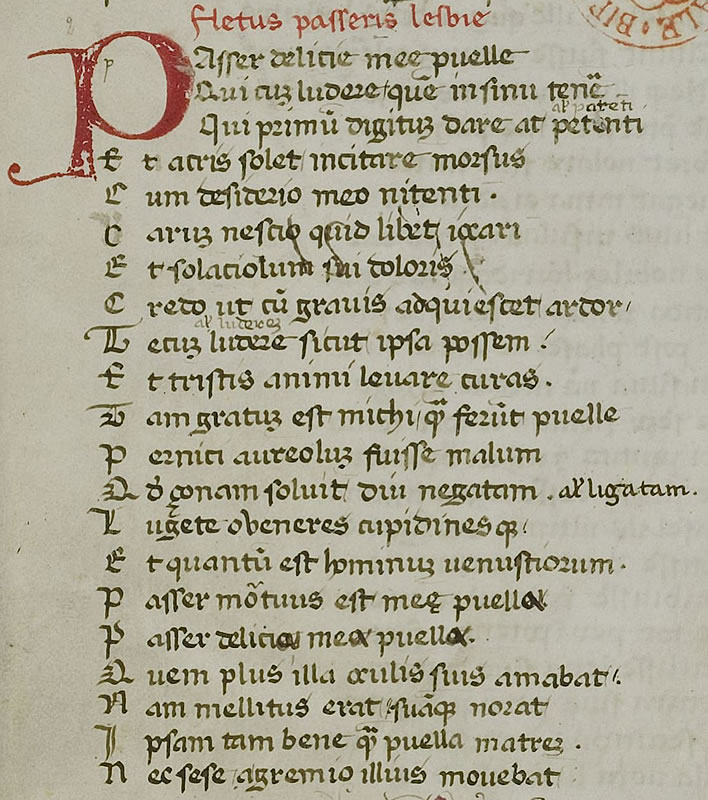 Fletus passeris lesbie
PAsser delicie meę puelle
Qui cuʒ ludere quē in sinu tenē
al' pateti
Qui primū digituʒ dare at petenti
Et acris solet incitare morsus
Cum desiderio meo nitenti .
Caruʒ nescio quid libet iocari
Et solaciolum sui doloris
Credo ut cū grauis adquiescet ardor
al' ludereʒ
Tecuʒ ludere sicut ipsa possem .
Et tristis animi leuare curas .
Tam gratuʒ est michi qꝫ ferūt puelle
Pernici aureoluʒ fuisse malum
Qđ çonam soluit diu negatam . al' ligatam .
Lugete o veneres cupidinesqꝫ
Et quantū est hominuʒ uenustiorum .
Passer mo᷑tuus est meę puellæ
Passer deliciæ meæ puellæ .
Quem plus illa oculis suis amabat
Nam mellitus erat suāqꝫ norat
Ipsam tam bene qꝫ puella matreʒ .
Nec sese agremio illius mouebat